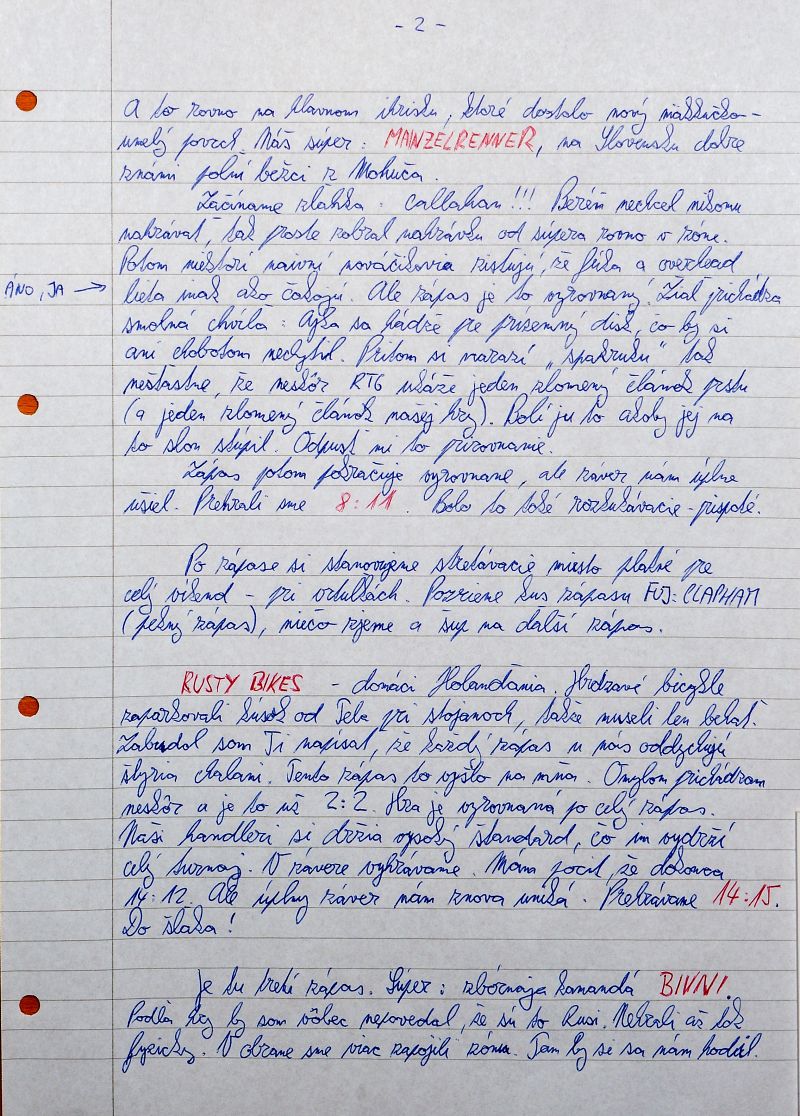 - 2 -
A to rovno na hlavnom ihrisku, ktoré dostalo nový mäkkučko-
umelý povrch. Náš súper: MAINZELRENNER, na Slovensku dobre
známi poľní bežci z Mohuča.
Začíname zľahka: callahan!!! Berém nechcel nikomu
nahrávať, tak proste zobral nahrávku od súpera rovno v zóne.
Potom niektorí naivní nováčikovia zisťujú, že fúka a overhead
ÁNO, JA → lieta inak ako čakajú. Ale zápas je to vyrovnaný. Žiaľ prichádza
smolná chvíľa: Ajka sa hádže pre prízemný disk, čo by si
ani chobotom nechytil. Pritom si narazí „spakruku" tak
nešťastne, že neskôr RTG ukáže jeden zlomený článok prstu
(a jeden zlomený článok našej hry). Bolí ju to akoby jej na
to slon stúpil. Odpusť mi to prirovnanie.
Zápas potom pokračuje vyrovnane, ale záver nám úplne
ušiel. Prehrali sme 8:11. Bolo to také rozkukávacie-prispaté.
Po zápase si stanovujeme stretávacie miesto platné pre
celý víkend - pri vrtuľkách. Pozrieme kus zápasu FUJ:CLAPHAM
(pekný zápas), niečo zjeme a šup na ďalší zápas.
RUSTY BIKES - domáci Holanďania. Hrdzavé bicykle
zaparkovali kúsok od Teba pri stojanoch, takže museli len behať.
Zabudol som Ti napísať, že každý zápas u nás oddychujú
štyria chalani. Tento zápas to vyšlo na mňa. Omylom prichádzam
neskôr a je to už 2:2. Hra je vyrovnaná po celý zápas.
Naši handleri si držia vysoký štandard, čo im vydrží
celý turnaj. V závere vyhrávame. Mám pocit, že dokonca
14:12. Ale úplný záver nám znova uniká. Prehrávame 14:15.
Do šľaka!
Je tu tretí zápas. Súper: zbórnaja kamandá BIVNI.
Podľa hry by som vôbec nepovedal, že sú to Rusi. Nehrali až tak
fyzicky. V obrane sme viac zapojili zónu. Tam by si sa nám hodil.